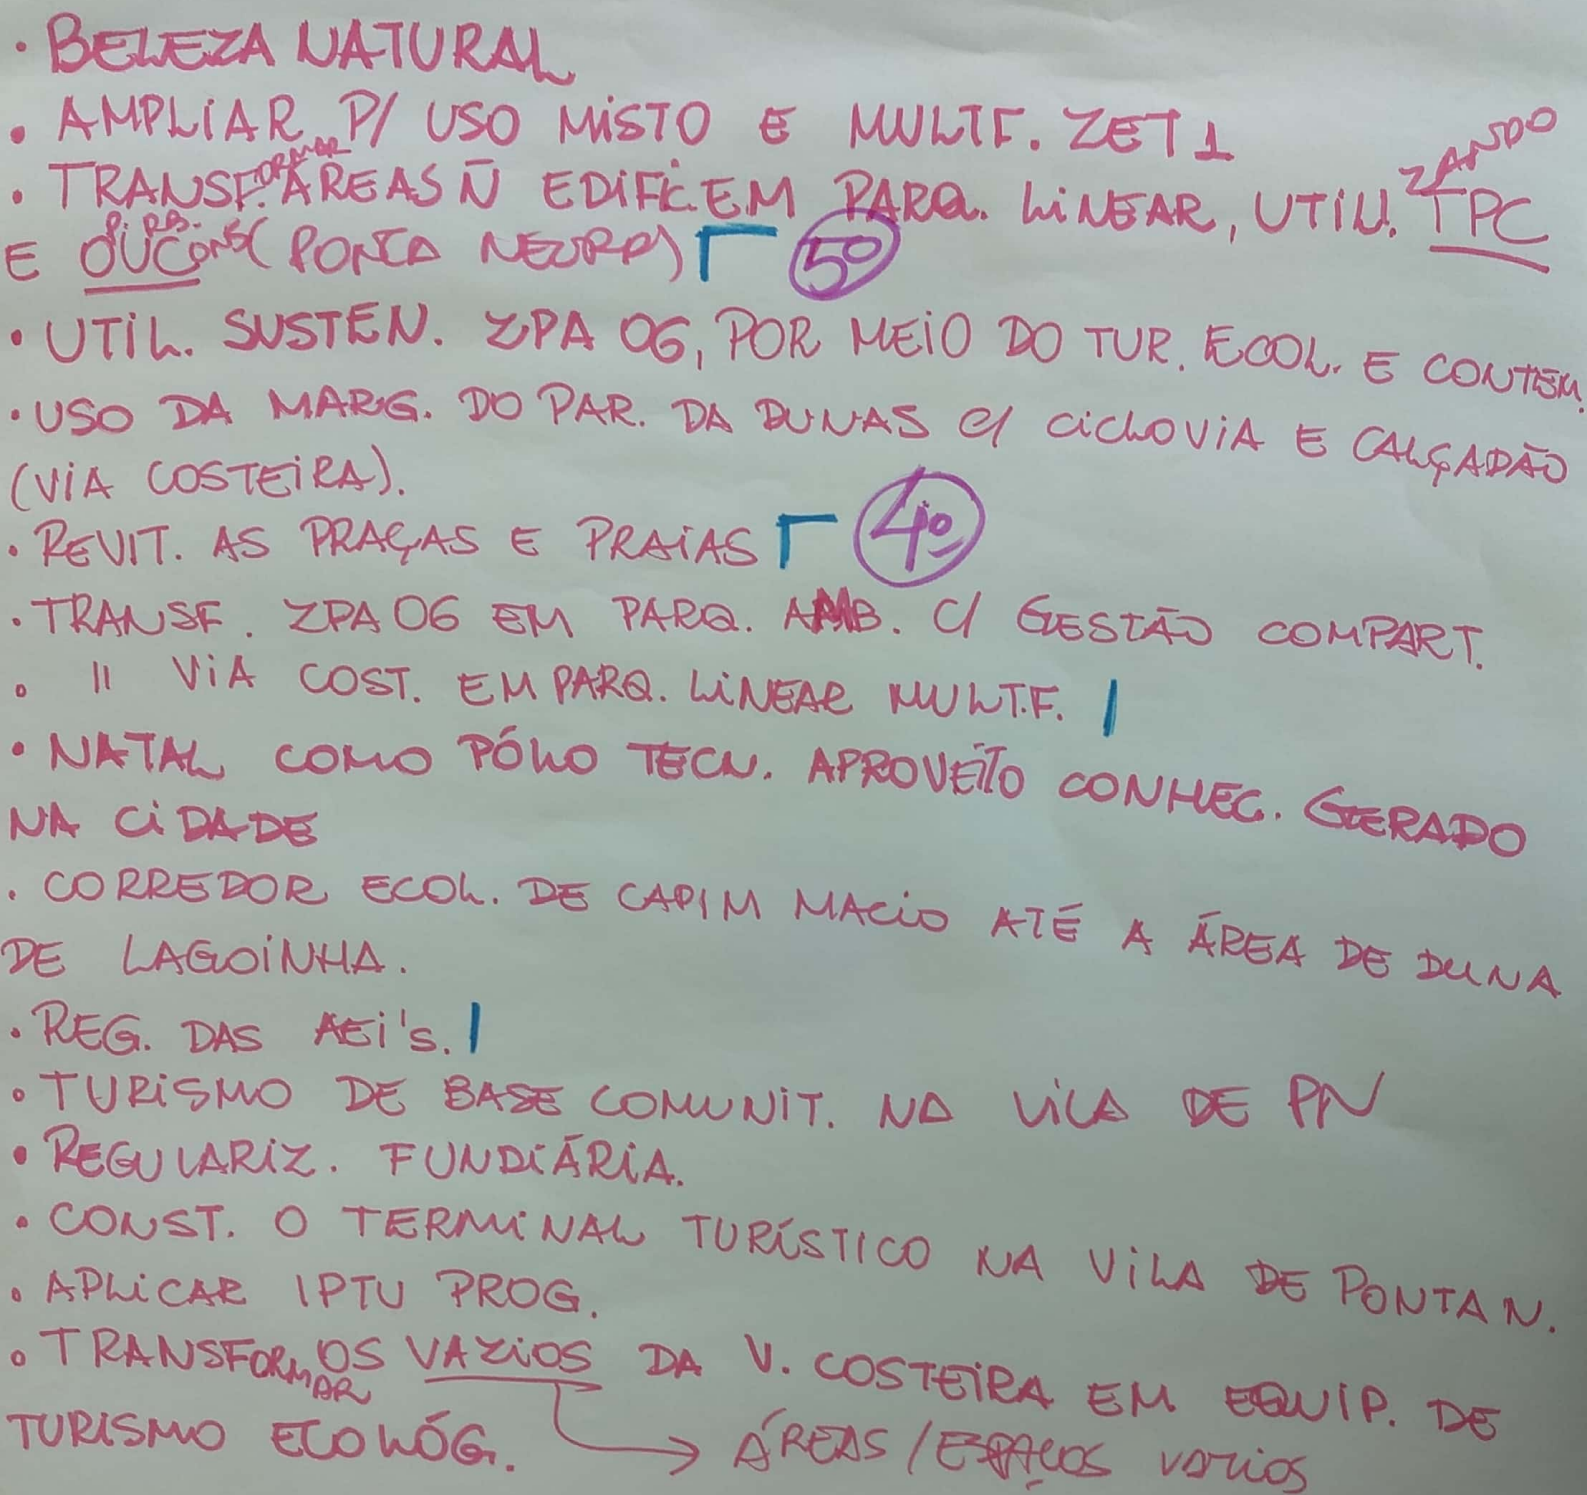 · BELEZA NATURAL
· AMPLIAR P/ USO MISTO E MULTF. ZET 1
· TRANSFORMAR ÁREAS Ñ EDIFIC. EM PARQ. LINEAR, UTILIZANDO TPC
E OUC (PONTA NEGRA) 5º
· UTIL. SUSTEN. ZPA 06, POR MEIO DO TUR. ECOL. E CONTEM.
· USO DA MARG. DO PAR. DA DUNAS C/ CICLOVIA E CALÇADÃO
(VIA COSTEIRA).
· REVIT. AS PRAÇAS E PRAIAS 4º
· TRANSF. ZPA 06 EM PARQ. AMB. C/ GESTÃO COMPART.
· " VIA COST. EM PARQ. LINEAR MULT.F.
· NATAL COMO PÓLO TECN. APROVEITO CONHEC. GERADO
NA CIDADE
· CORREDOR ECOL. DE CAPIM MACIO ATÉ A ÁREA DE DUNA
DE LAGOINHA.
· REG. DAS AEI'S.
· TURISMO DE BASE COMUNIT. NA VILA DE PN
· REGULARIZ. FUNDIÁRIA.
· CONST. O TERMINAL TURÍSTICO NA VILA DE PONTA N.
· APLICAR IPTU PROG.
· TRANSFORMAR OS VAZIOS DA V. COSTEIRA EM EQUIP. DE
TURISMO ECOLÓG. → ÁREAS / ESPAÇOS VAZIOS